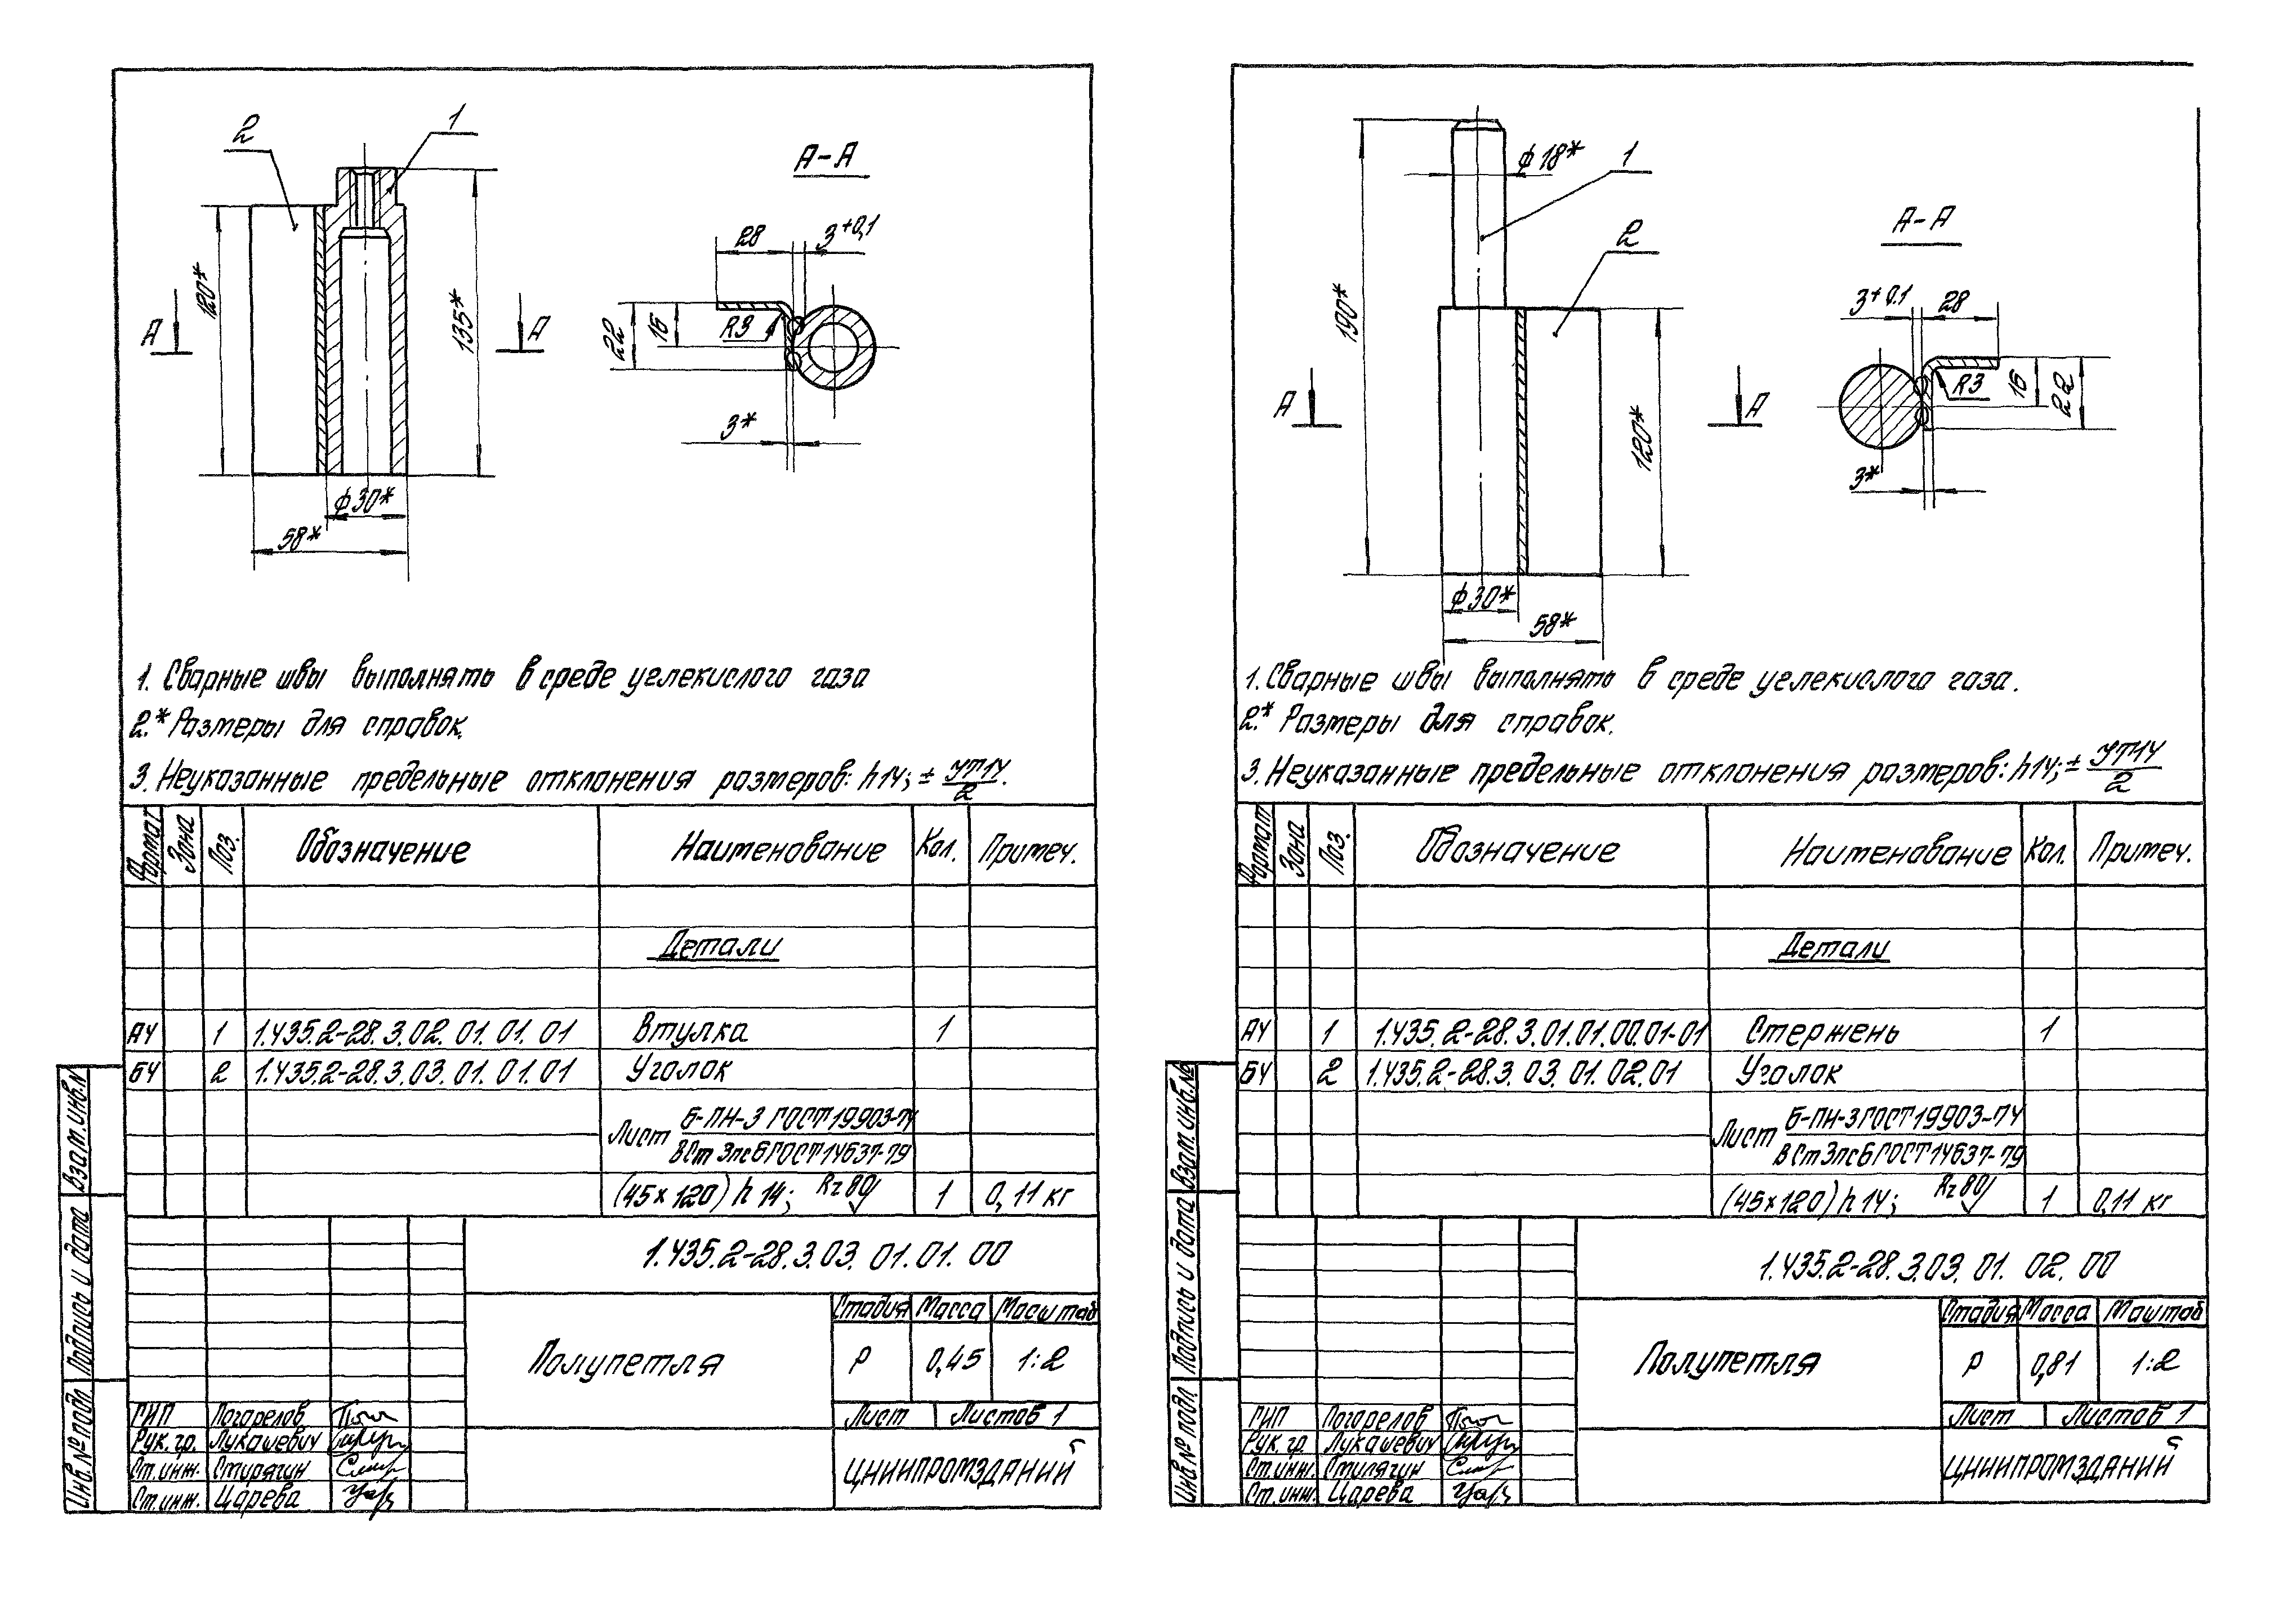 2
1
А-А
120*
135*
А
А
ф30*
58*
28
3+0,1
22
16
R3
3*
1. Сварные швы выполнять в среде углекислого газа
2.* Размеры для справок.
3. Неуказанные предельные отклонения размеров: h14; ± УТ14/2.
Формат Зона Поз. Обозначение Наименование Кол. Примеч.
Детали
А4 1 1.435.2-28.3.02.01.01.01 Втулка 1
БЧ 2 1.435.2-28.3.03.01.01.01 Уголок
Лист Б-ПН-3 ГОСТ19903-74
ВСт3пс6ГОСТ14637-79
(45х120) h 14; Rz80 1 0,11 кг
1.435.2-28.3.03.01.01.00
Полупетля
Стадия Масса Масштаб
Р 0,45 1:2
Лист Листов 1
ГИП Погорелов
Рук.гр. Лукашевич
Ст.инж. Стирягин
Ст.инж. Царева
ЦНИИПРОМЗДАНИЙ
Взам.инв.№
Подпись и дата
Инв.№ подл.
ф18*
1
2
190*
120*
А
А
ф30*
58*
А-А
3+0.1
28
R3
16
22
3*
1. Сварные швы выполнять в среде углекислого газа.
2.* Размеры для справок.
3. Неуказанные предельные отклонения размеров: h14; ± УТ14/2
Формат Зона Поз. Обозначение Наименование Кол. Примеч.
Детали
А4 1 1.435.2-28.3.01.01.00.01-01 Стержень 1
БЧ 2 1.435.2-28.3.03.01.02.01 Уголок
Лист Б-ПН-3ГОСТ19903-74
ВСт3пс6ГОСТ14637-79
(45х120) h 14; Rz80 1 0,11 кг
1.435.2-28.3.03.01.02.00
Полупетля
Стадия Масса Маштаб
Р 0,81 1:2
Лист Листов 1
ГИП Погорелов
Рук.гр. Лукашевич
Ст.инж. Стирягин
Ст.инж. Царева
ЦНИИПРОМЗДАНИЙ
Взам.инв.№
Подпись и дата
Инв.№ подл.